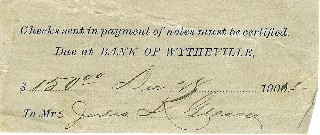 Checks sent in payment of notes must be certified.
Due at BANK OF WYTHEVILLE,
$ 150.00 Dec 18 190
To Mrs Julia